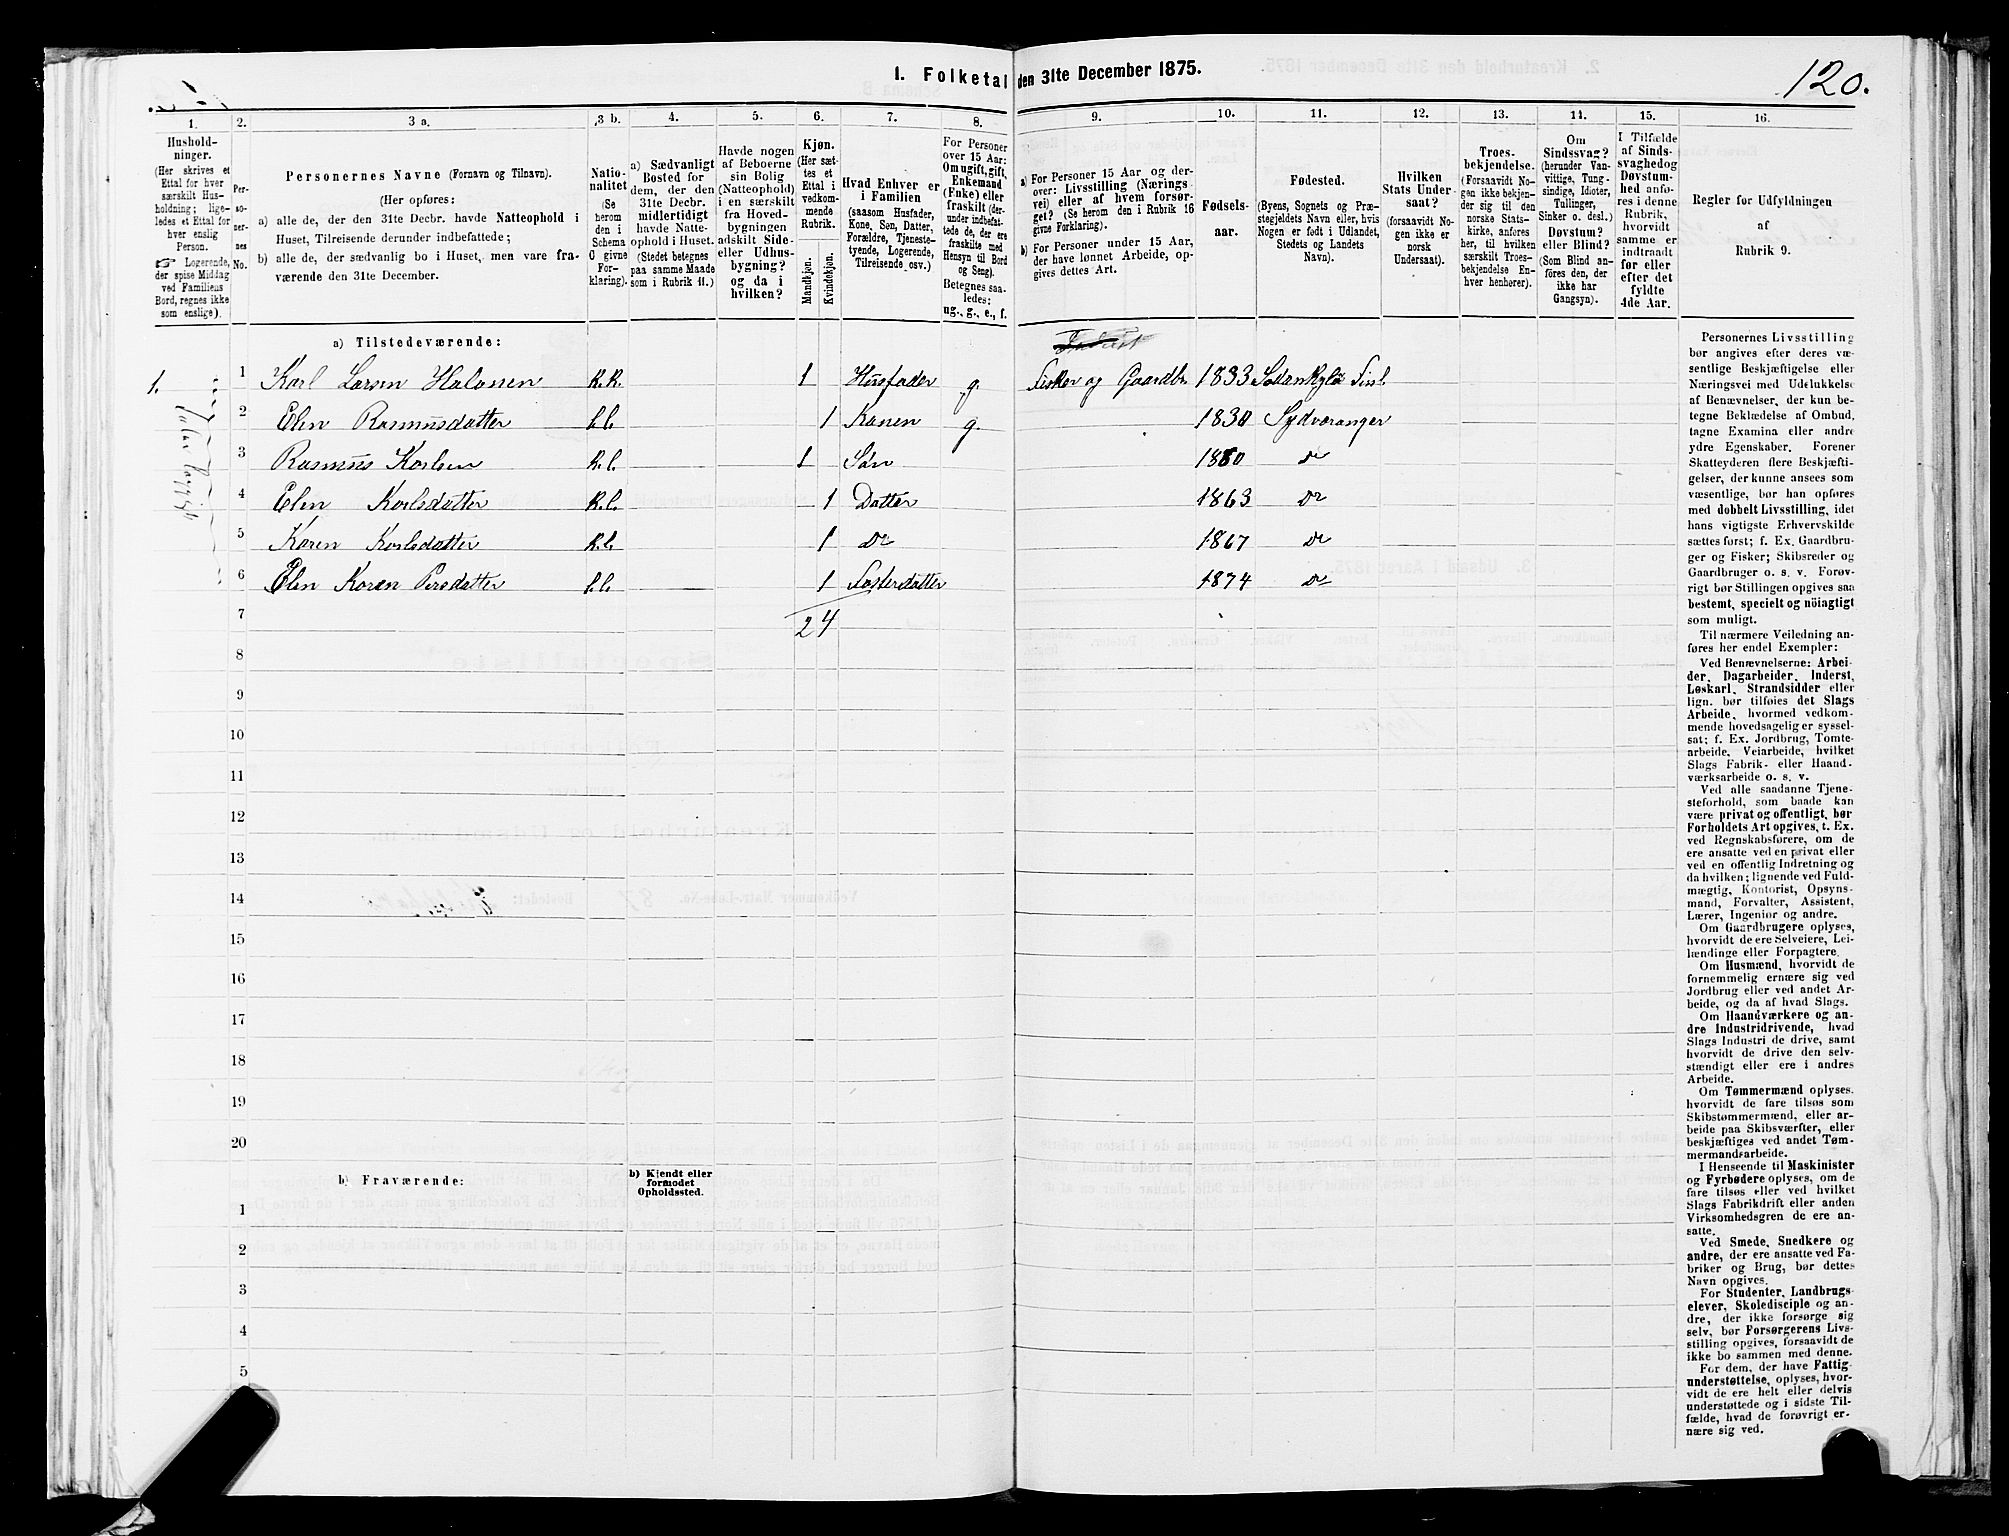 1. Folketal den 31te December 1875.
120.
1.
Hushold-
ninger.
(Her skrives et
Ettal for hver
særskilt Hus-
holdning; lige-
ledes et Ettal for
hver enslig
Person.
☞ Logerende,
der spise Middag
ved Familiens
Bord, regnes ikke
som enslige).
2.
Per-
so-
ner-
nes
No.
3 a.
Personernes Navne (Fornavn og Tilnavn).
(Her opføres:
a) alle de, der den 31te Decbr. havde Natteophold i
Huset, Tilreisende derunder indbefattede;
b) alle de, der sædvanlig bo i Huset, men vare fra-
værende den 31te December.
3 b.
Natio-
nalitet
(Se
herom
den i
Schema
C givne
For-
klaring).
4.
a) Sædvanligt
Bosted for
dem, der den
31te Decbr.
midlertidigt
havde Natte-
ophold i Huset.
(Stedet betegnes
paa samme Maade
som i Rubrik 11.)
5.
Havde nogen
af Beboerne
sin Bolig
(Natteophold)
i en særskilt
fra Hoved-
bygningen
adskilt Side-
eller Udhus-
bygning?
og da i
hvilken?
6.
Kjøn.
(Her sæt-
tes et
Ettal i
vedkom-
mende
Rubrik.
Mandkjøn.
Kvindekjøn.
7.
Hvad Enhver er
i Familien
(saasom Husfader,
Kone, Søn, Datter,
Forældre, Tjeneste-
tyende, Logerende,
Tilreisende osv.)
8.
For Personer
over 15 Aar:
Om ugift, gift,
Enkemand
(Enke) eller
fraskilt (der-
under indbefat-
tede de, der ere
fraskilte med
Hensyn til Bord
og Seng).
Betegnes saa-
ledes:
ug., g., e., f.
9.
a) For Personer 15 Aar og der-
over: Livsstilling (Nærings-
vei) eller af hvem forsør-
get? (Se herom den i Rubrik 16
givne Forklaring).
b) For Personer under 15 Aar,
der have lønnet Arbeide, op-
gives dettes Art.
10.
Fødsels-
aar.
11.
Fødested.
(Byens, Sognets og Præ-
stegjeldets Navn eller, hvis
Nogen er født i Udlandet,
Stedets og Landets
Navn).
12.
Hvilken
Stats Under-
saat?
(forsaavidt No-
gen ikke er
norsk
Undersaat).
13.
Troes-
bekjendelse.
(Forsaavidt No-
gen ikke bekjen-
der sig til den
norske Stats-
kirke, anføres
her, til hvilken
særskilt Troes-
bekjendelse En-
hver henhører).
14.
Om
Sindssvag?
(herunder Van-
vittige, Tung-
sindige, Idioter,
Tullinger,
Sinker o. desl.)
Døvstum?
eller Blind?
(Som Blind an-
føres den, der
ikke har
Gangsyn).
15.
I Tilfælde
af Sinds-
svaghed og
Døvstum-
hed anfø-
res i denne
Rubrik,
hvorvidt
samme er
indtraadt
før eller
efter det
fyldte
4de Aar.
16.
Regler for Udfyldningen
af
Rubrik 9.
a) Tilstedeværende:
1. 1 Karl Larsen Halonen k.k. 1 Husfader g. Fisker og Gaardbr. 1833 Sodankylä Finl.
2 Elen Rasmusdatter l.l. 1 Konen g. 1830 Sydvaranger
3 Rasmus Karlsen k.l. 1 Søn 1860 do
4 Elen Karlsdatter k.l. 1 Datter 1863 do
5 Karen Karlsdatter k.l. 1 do 1867 do
6 Elen Karen Persdatter l.l. 1 Fosterdatter 1874 do
7 2 4
8
9
10
11
12
13
14
15
16
17
18
19
20
b) Fraværende:
b) Kjendt eller
formodet
Opholdssted.
1
2
3
4
5
Personernes Livsstilling
bør angives efter deres væ-
sentlige Beskjæftigelse eller
Næringsvei med Udelukkelse
af Benævnelser, der kun be-
tegne Beklædelse af Ombud,
tagne Examina eller andre
ydre Egenskaber. Forener
Skatteyderen flere Beskjæfti-
gelser, der kunne ansees som
væsentlige, bør han opføres
med dobbelt Livsstilling, idet
hans vigtigste Erhvervskilde
sættes først; f. Ex. Gaardbru-
ger og Fisker; Skibsreder og
Gaardbruger o. s. v. Forøv-
rigt bør Stillingen opgives saa
bestemt, specielt og nöiagtigt
som muligt.
Til nærmere Veiledning an-
føres her endel Exempler:
Ved Benævnelserne: Arbei-
der, Dagarbeider, Inderst,
Løskarl, Strandsidder eller
lign. bør tilføies det Slags
Arbeide, hvormed vedkom-
mende hovedsagelig er syssel-
sat; f. Ex. Jordbrug, Tomte-
arbeide, Veiarbeide, hvilket
Slags Fabrik- eller Haand-
værksarbeide o. s. v.
Ved alle saadanne Tjene-
steforhold, som baade kan
være privat og offentligt, bør
Forholdets Art opgives, t. Ex.
ved Regnskabsførere, om de
ere ansatte ved en privat eller
ved en offentlig Indretning og
da hvilken; lignende ved Fuld-
mægtig, Kontorist, Opsyns-
mand, Forvalter, Assistent,
Lærer, Ingeniør og andre.
Om Gaardbrugere oplyses,
hvorvidt de ere Selveiere, Lei-
lændinge eller Forpagtere.
Om Husmænd, hvorvidt de
fornemmelig ernære sig ved
Jordbrug eller ved andet Ar-
beide, og da af hvad Slags.
Om Haandværkere og an-
dre Industridrivende, hvad
Slags Industri de drive, samt
hvorvidt de drive den selv-
stændigt eller ere i andres
Arbeide.
Om Tømmermænd oplyses,
hvorvidt de fare tilsøs som
Skibstømmermænd, eller ar-
beide paa Skibsværfter, eller
beskjæftiges ved andet Tøm-
mermandsarbeide.
I Henseende til Maskinister
og Fyrbødere oplyses, om de
fare tilsøs eller ved hvilket
Slags Fabrikdrift eller anden
Virksomhedsgren de ere an-
satte.
Ved Smede, Snedkere og
andre, der ere ansatte ved Fa-
briker og Brug, bør dettes
Navn opgives.
For Studenter, Landbrugs-
elever, Skoledisciple og an-
dre, der ikke forsørge sig
selv, bør Forsørgerens Livs-
stilling opgives, forsaavidt de
ikke bo sammen med denne.
For dem, der have Fattig-
understøttelse, oplyses, hvor-
vidt de ere helt eller delvis
understøttede og i sidste Til-
fælde, hvad de forøvrigt er-
nære sig ved.